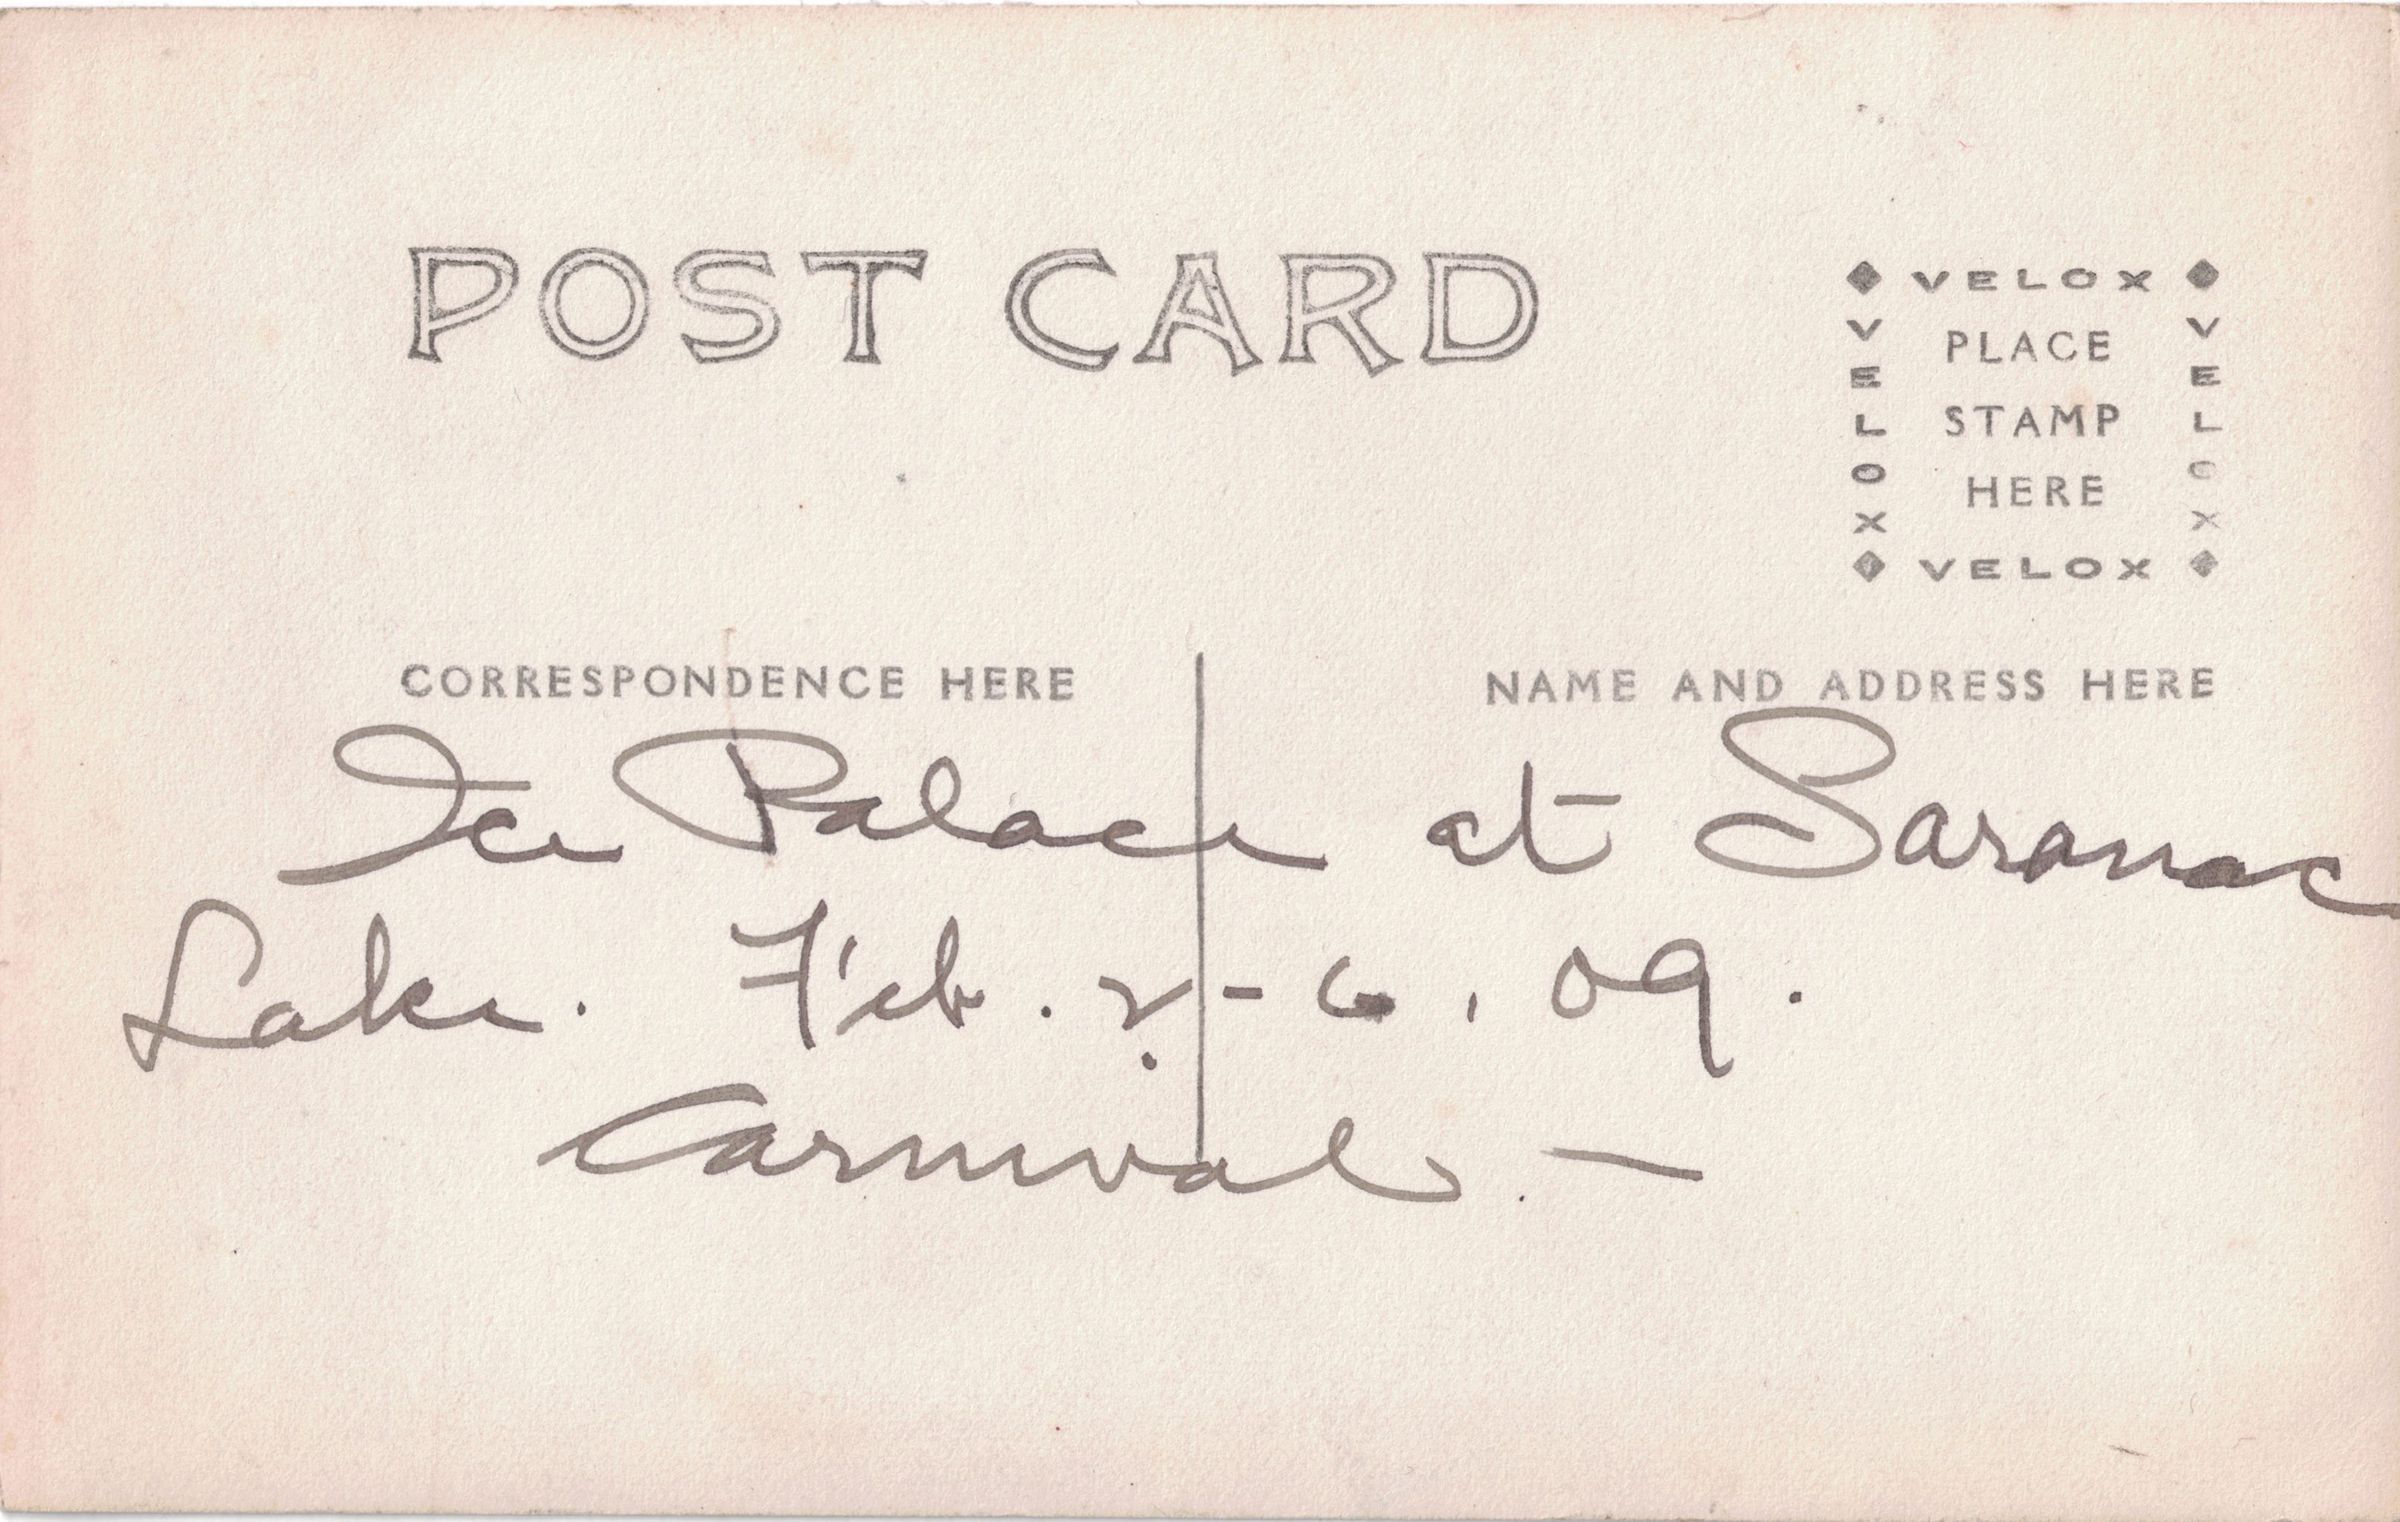 POST CARD
VELOX
VELOX
VELOX
PLACE
STAMP
HERE
VELOX
CORRESPONDENCE HERE
NAME AND ADDRESS HERE
Ice Palace at Saranac
Lake. Feb. 2-6, 09.
Carnival. —